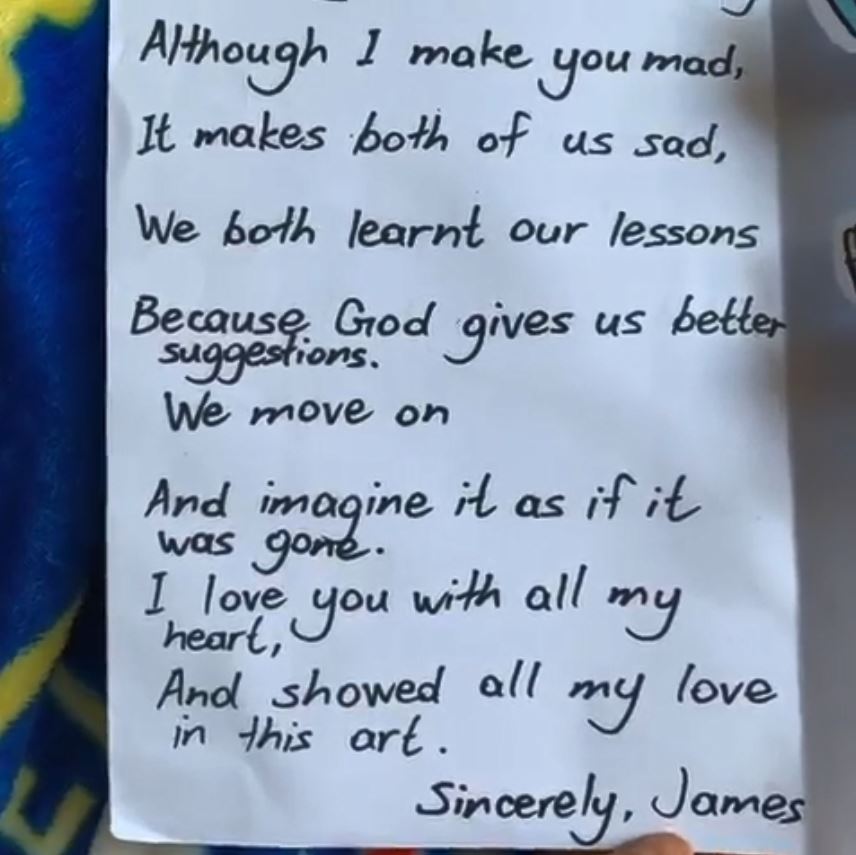 Although I make you mad,
It makes both of us sad,
We both learnt our lessons
Because God gives us better
suggestions.
We move on
And imagine it as if it
was gone.
I love you with all my
heart,
And showed all my love
in this art.
Sincerely, James